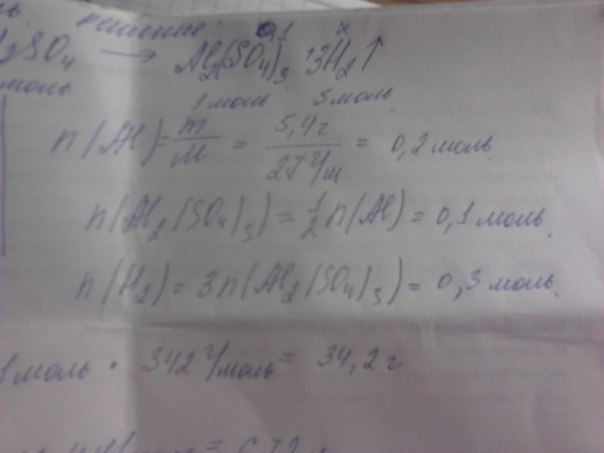 решение: 0,1 x
2SO4 → Al2(SO4)3 + 3H2↑
моль 1 моль 3 моль
n(Al) = m/M = 5,4 г / 27 г/м = 0,2 моль
n(Al2(SO4)3) = 1/2 n(Al) = 0,1 моль
n(H2) = 3n(Al2(SO4)3) = 0,3 моль
1 моль · 342 г/моль = 34,2 г